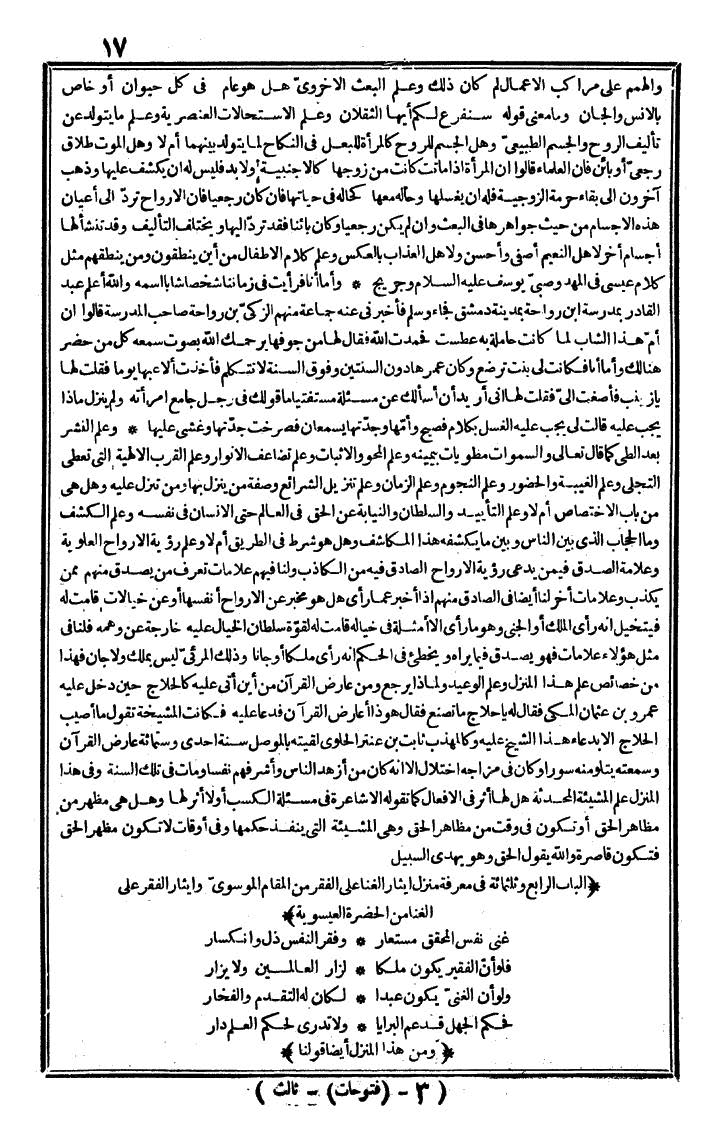 ١٧
والهمم على مراكب الاعمال لم كان ذلك وعلم البعث الاخروىّ هل هو عام فى كل حيوان أو خاص
بالانس والجان وما معنى قوله سنفرغ لكم أيها الثقلان وعلم الاستحالات العنصرية وعلم ما يتولد عن
تأليف الروح والجسم الطبيعىّ وهل الجسم للروح كالمرأة للبعل فى النكاح لما يتولد بينهما أم لا وهل الموت طلاق
رجعىّ أو بائن فان العلماء قالوا ان المرأة اذا ماتت كانت من زوجها كالاجنبية ولا بد فليس له ان يكشف عليها وذهب
آخرون الى بقاء حرمة الزوجية فله ان يغسلها وحاله معها كحاله فى حياتها فان كان رجعيا فان الارواح تردّ الى أعيان
هذه الاجسام من حيث جواهرها فى البعث وان لم يكن رجعيا وكان بائنا فقد تردّ اليها ويختلف التأليف وقد تنشأ لها
أجسام أخر لاهل النعيم أصفى وأحسن ولاهل العذاب بالعكس وعلم كلام الاطفال من أين ينطقون ومن ينطقهم مثل
كلام عيسى فى المهد وصبىّ يوسف عليه السلام وجريج * وأما أنا فرأيت فى زماننا شخصا شابا اسمه والله أعلم عبد
القادر بمدرسة ابن رواحة بمدينة دمشق فجاء وسلم فأخبرنى عنه جماعة منهم الزكىّ بن رواحة صاحب المدرسة قالوا ان
أمّ هذا الشاب لما كانت حاملة به عطست فحمدت الله فقال لها من جوفها يرحمك الله بصوت سمعه كل من حضر
هنالك وأما أنا فكانت لى بنت ترضع وكان عمرها دون السنتين وفوق السنة لا تتكلم فأخذت ألاعبها يوما فقلت لها
يا زينب فأصغت الىّ فقلت لها انى أريد أن أسألك عن مسئلة مستفتيا ما قولك فى رجل جامع امرأته ولم ينزل ماذا
يجب عليه قالت لى يجب عليه الغسل بكلام فصيح وأمّها وجدّتها يسمعان فصرخت جدّتها وغشى عليها * وعلم النشر
بعد الطى كما قال تعالى والسموات مطويات بيمينه وعلم المحو والاثبات وعلم تضاعف الانوار وعلم القرب الالهية التى تعطى
التجلى وعلم الغيبة والحضور وعلم النجوم وعلم الزمان وعلم تنزيل الشرائع وصفة من ينزل بها ومن تنزل عليه وهل هى
من باب الاختصاص أم لا وعلم التأييد والسلطان والنيابة عن الحق فى العالم حتى الانسان فى نفسه وعلم الكشف
وما الحجاب الذى بين الناس وبين ما يكشفه هذا المكاشف وهل هو شرط فى الطريق أم لا وعلم رؤية الارواح العلوية
وعلامة الصدق فيمن يدعى رؤية الارواح الصادق فيه من الكاذب ولنا فيهم علامات تعرف من يصدق منهم ممن
يكذب وعلامات أخر لنا أيضا فى الصادق منهم اذا أخبر عما رأى هل هو مخبر عن الارواح أنفسها أو عن خيالات قامت له
فيتخيل انه رأى الملك أو الجنى وهو ما رأى الا أمثلة فى خياله قامت له لقوّة سلطان الخيال عليه خارجة عن وهمه فلنا فى
مثل هؤلاء علامات فهو يصدق فيما يراه ويخطئ فى الحكم انه رأى ملكا أو جانا وذلك المرئىّ ليس بملك ولا جان فهذا
من خصائص علم هذا المنزل وعلم الوعيد ولماذا يرجع ومن عارض القرآن من أين أتى عليه كالحلاج حين دخل عليه
عمرو بن عثمان المكى فقال له يا حلاج ما تصنع فقال هو ذا أعارض القرآن فدعا عليه فكانت المشيخة تقول ما أصيب
الحلاج الا بدعاء هذا الشيخ عليه وكالمهذب ثابت بن عنتر الحلوى لقيته بالموصل سنة احدى وستمائة عارض القرآن
وسمعته يتلو منه سورا وكان فى مزاجه اختلال الا انه كان من أزهد الناس وأشرفهم نفسا ومات فى تلك السنة وفى هذا
المنزل علم المشيئة المحدثة هل لها أثر فى الافعال كما تقوله الاشاعرة فى مسئلة الكسب أو لا أثر لها وهل هى مظهر من
مظاهر الحق أو تكون فى وقت من مظاهر الحق وهى المشيئة التى ينفذ حكمها وفى أوقات لا تكون مظهر الحق
فتكون قاصرة والله يقول الحق وهو يهدى السبيل
﴿الباب الرابع وثلثمائة فى معرفة منزل ايثار الغنا على الفقر من المقام الموسوىّ وايثار الفقر على
الغنا من الحضرة العيسوية﴾
غنى نفس المحقق مستعار * وفقر النفس ذل وانكسار
فلو أنّ الفقير يكون ملكا * لزار العالمين ولا يزار
ولو أن الغنىّ يكون عبدا * لكان له التقدم والفخار
فحكم الجهل قد عم البرايا * ولا تدرى لحكم العلم دار
﴿ومن هذا المنزل أيضا قولنا﴾
( ٣ - (فتوحات) - ثالث )